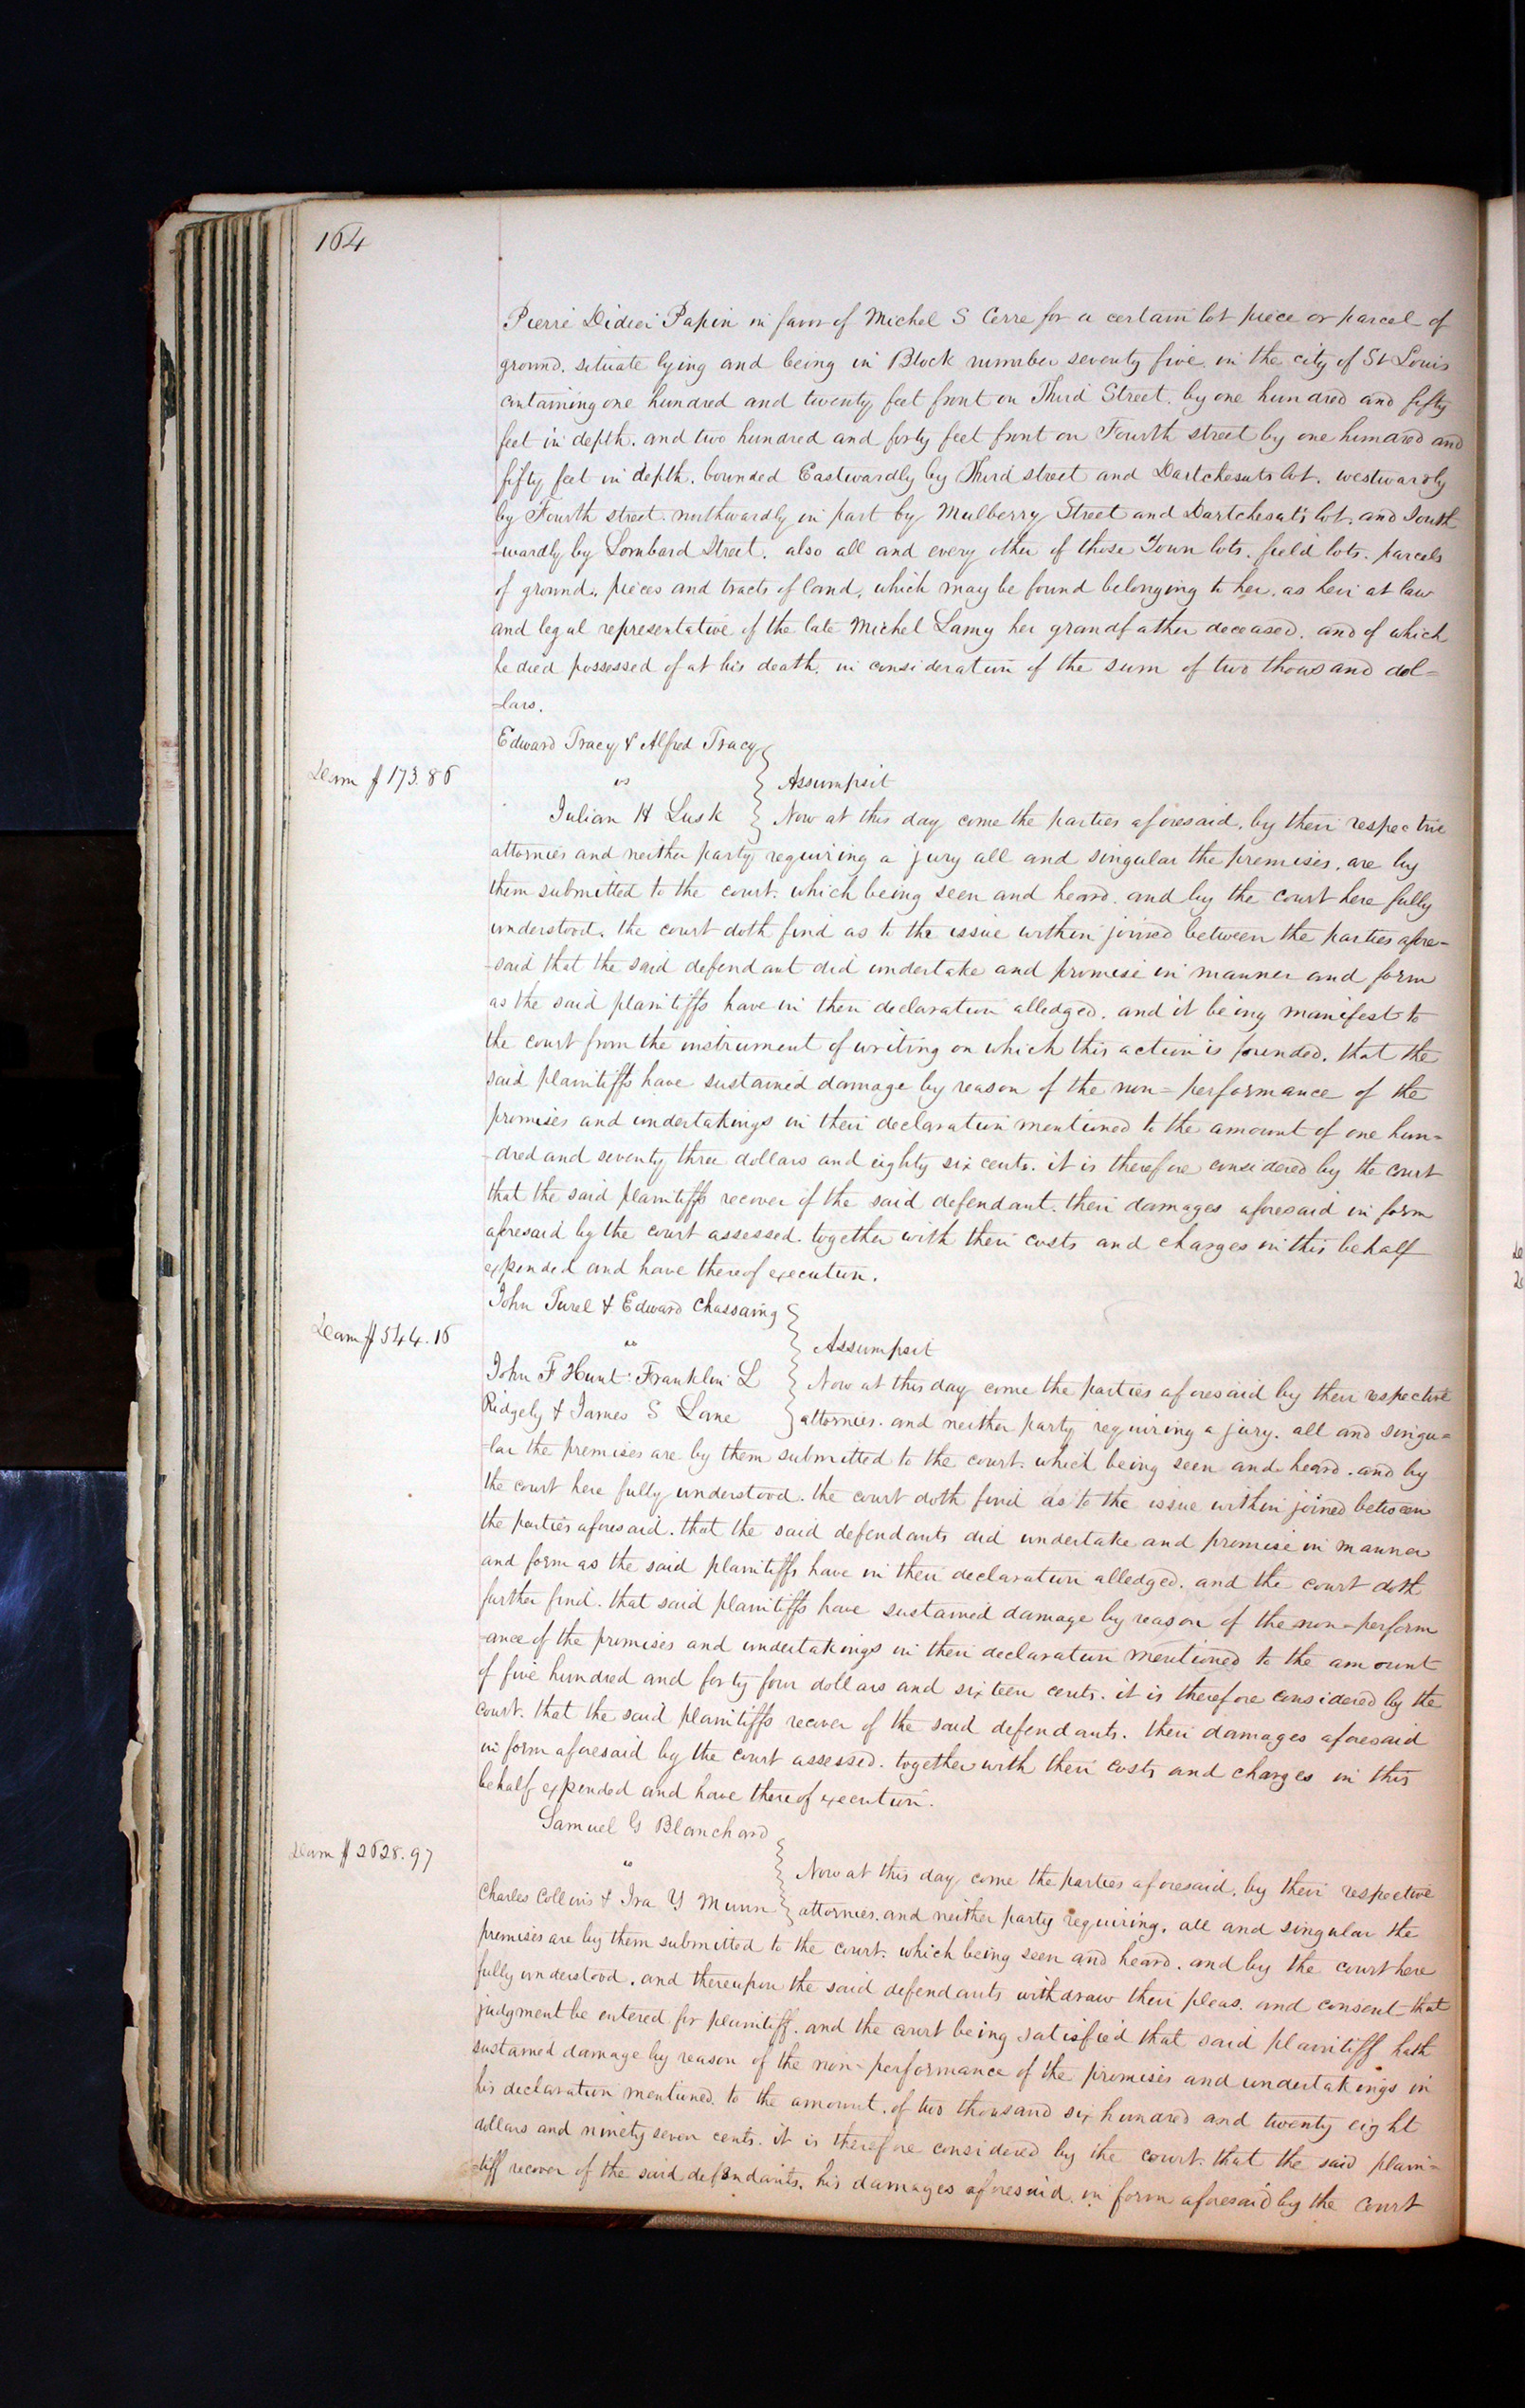 164
Pierre Didier Papin in favor of Michel S Cerre for a certain lot piece or parcel of
ground. situate lying and being in Block number seventy five in the city of St Louis
containing one hundred and twenty feet front on Third Street. by one hundred and fifty
feet in depth. and two hundred and forty feet front on Fourth street by one hundred and
fifty feet in depth. bounded Eastwardly by Third street and Dartchesuts lot. westwardly
by Fourth street. northwardly in part by Mulberry Street and Dartchesut's lot. and South
-wardly by Lombard Street. also all and every other of those Town lots. field lots. parcels
of ground. pieces and tracts of land, which may be found belonging to her. as heir at law
and legal representative of the late Michel Lamy her grandfather deceased. and of which
he died possessed of at his death. in consideration of the sum of two thousand dol=
-lars.
Edward Tracy & Alfred Tracy
Dam $173.86
vs Assumpsit
Julian H Lusk Now at this day come the parties aforesaid, by their respective
attornies and neither party requiring a jury all and singular the premises, are by
them submitted to the court. which being seen and heard. and by the court here fully
understood. the court doth find as to the issue within joined between the parties afore-
-said that the said defendant did undertake and promise in manner and form
as the said plaintiffs have in their declaration alledged. and it being manifest to
the court from the instrument of writing on which this action is founded. that the
said plaintiffs have sustained damage by reason of the non-performance of the
promises and undertakings in their declaration mentioned to the amount of one hun-
-dred and seventy three dollars and eighty six cents. it is therefore considered by the court
that the said plaintiffs recover of the said defendant. their damages aforesaid in form
aforesaid by the court assessed. together with their costs and charges in this behalf
expended and have thereof execution.
John Turel & Edward Chassaing
Dam $544.16
vs Assumpsit
John F Hunt. Franklin L Now at this day come the parties aforesaid by their respective
Ridgely & James S Lane attornies. and neither party requiring a jury. all and singu-
-lar the premises are by them submitted to the court. which being seen and heard. and by
the court here fully understood. the court doth find as to the issue within joined between
the parties aforesaid. that the said defendants did undertake and promise in manner
and form as the said plaintiffs have in their declaration alledged. and the court doth
further find. that said plaintiffs have sustained damage by reason of the non-perform
-ance of the promises and undertakings in their declaration mentioned to the amount
of five hundred and forty four dollars and sixteen cents. it is therefore considered by the
court. that the said plaintiffs recover of the said defendants. their damages aforesaid
in form aforesaid by the court assessed. together with their costs and charges in this
behalf expended and have thereof execution.
Samuel G Blanchard
Dam $2628.97
vs Now at this day come the parties aforesaid, by their respective
Charles Collins & Ira Y Munn attornies. and neither party requiring. all and singular the
premises are by them submitted to the court. which being seen and heard. and by the court here
fully understood. and thereupon the said defendants withdraw their pleas. and consent that
judgment be entered for plaintiff. and the court being satisfied that said plaintiff hath
sustained damage by reason of the non-performance of the promises and undertakings in
his declaration mentioned. to the amount. of two thousand six hundred and twenty eight
dollars and ninety seven cents. it is therefore considered by the court. that the said plain=
-tiff recover of the said defendants. his damages aforesaid. in form aforesaid by the court